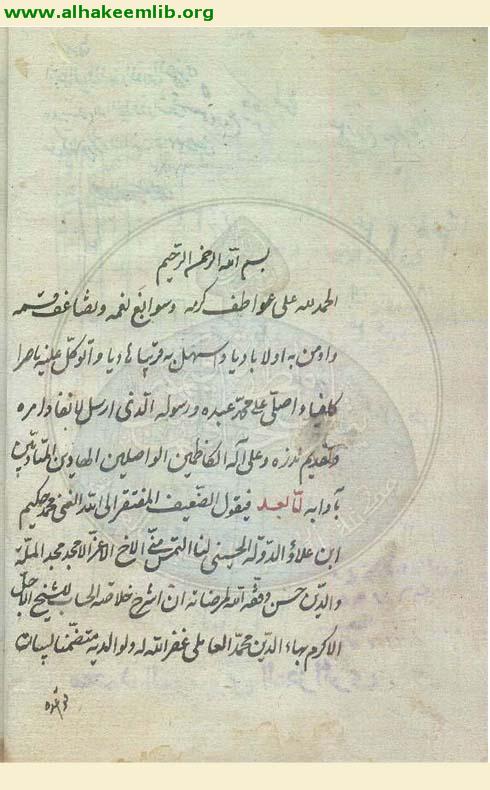 www.alhakeemlib.org
بسم الله الرحمن الرحيم
الحمد لله على عواطف كرمه وسوابغ نعمه وتضاعف قسمه
واومن به اولا باديا واستهل به قريبا هاديا واتوكل عليه ناصرا
كافيا واصلى على محمد عبده ورسوله الذى ارسل لانفاذ امره
وتقديم نذره وعلى آله الكاظمين الواصلين الهادين المتادبين
بآدابه اما بعد فيقول الضعيف المفتقر الى الله الغنى محمد حكيم
ابن علاؤ الدوله الحسينى لما التمس منى الاخ الاعز الامجد مجد الملة
والدين حسن وفقه الله لمرضاته ان اشرح خلاصه الحساب للشيخ الاجل
الاكرم بهاء الدين محمد العاملى غفر الله له ولوالديه متضمنا لبيان